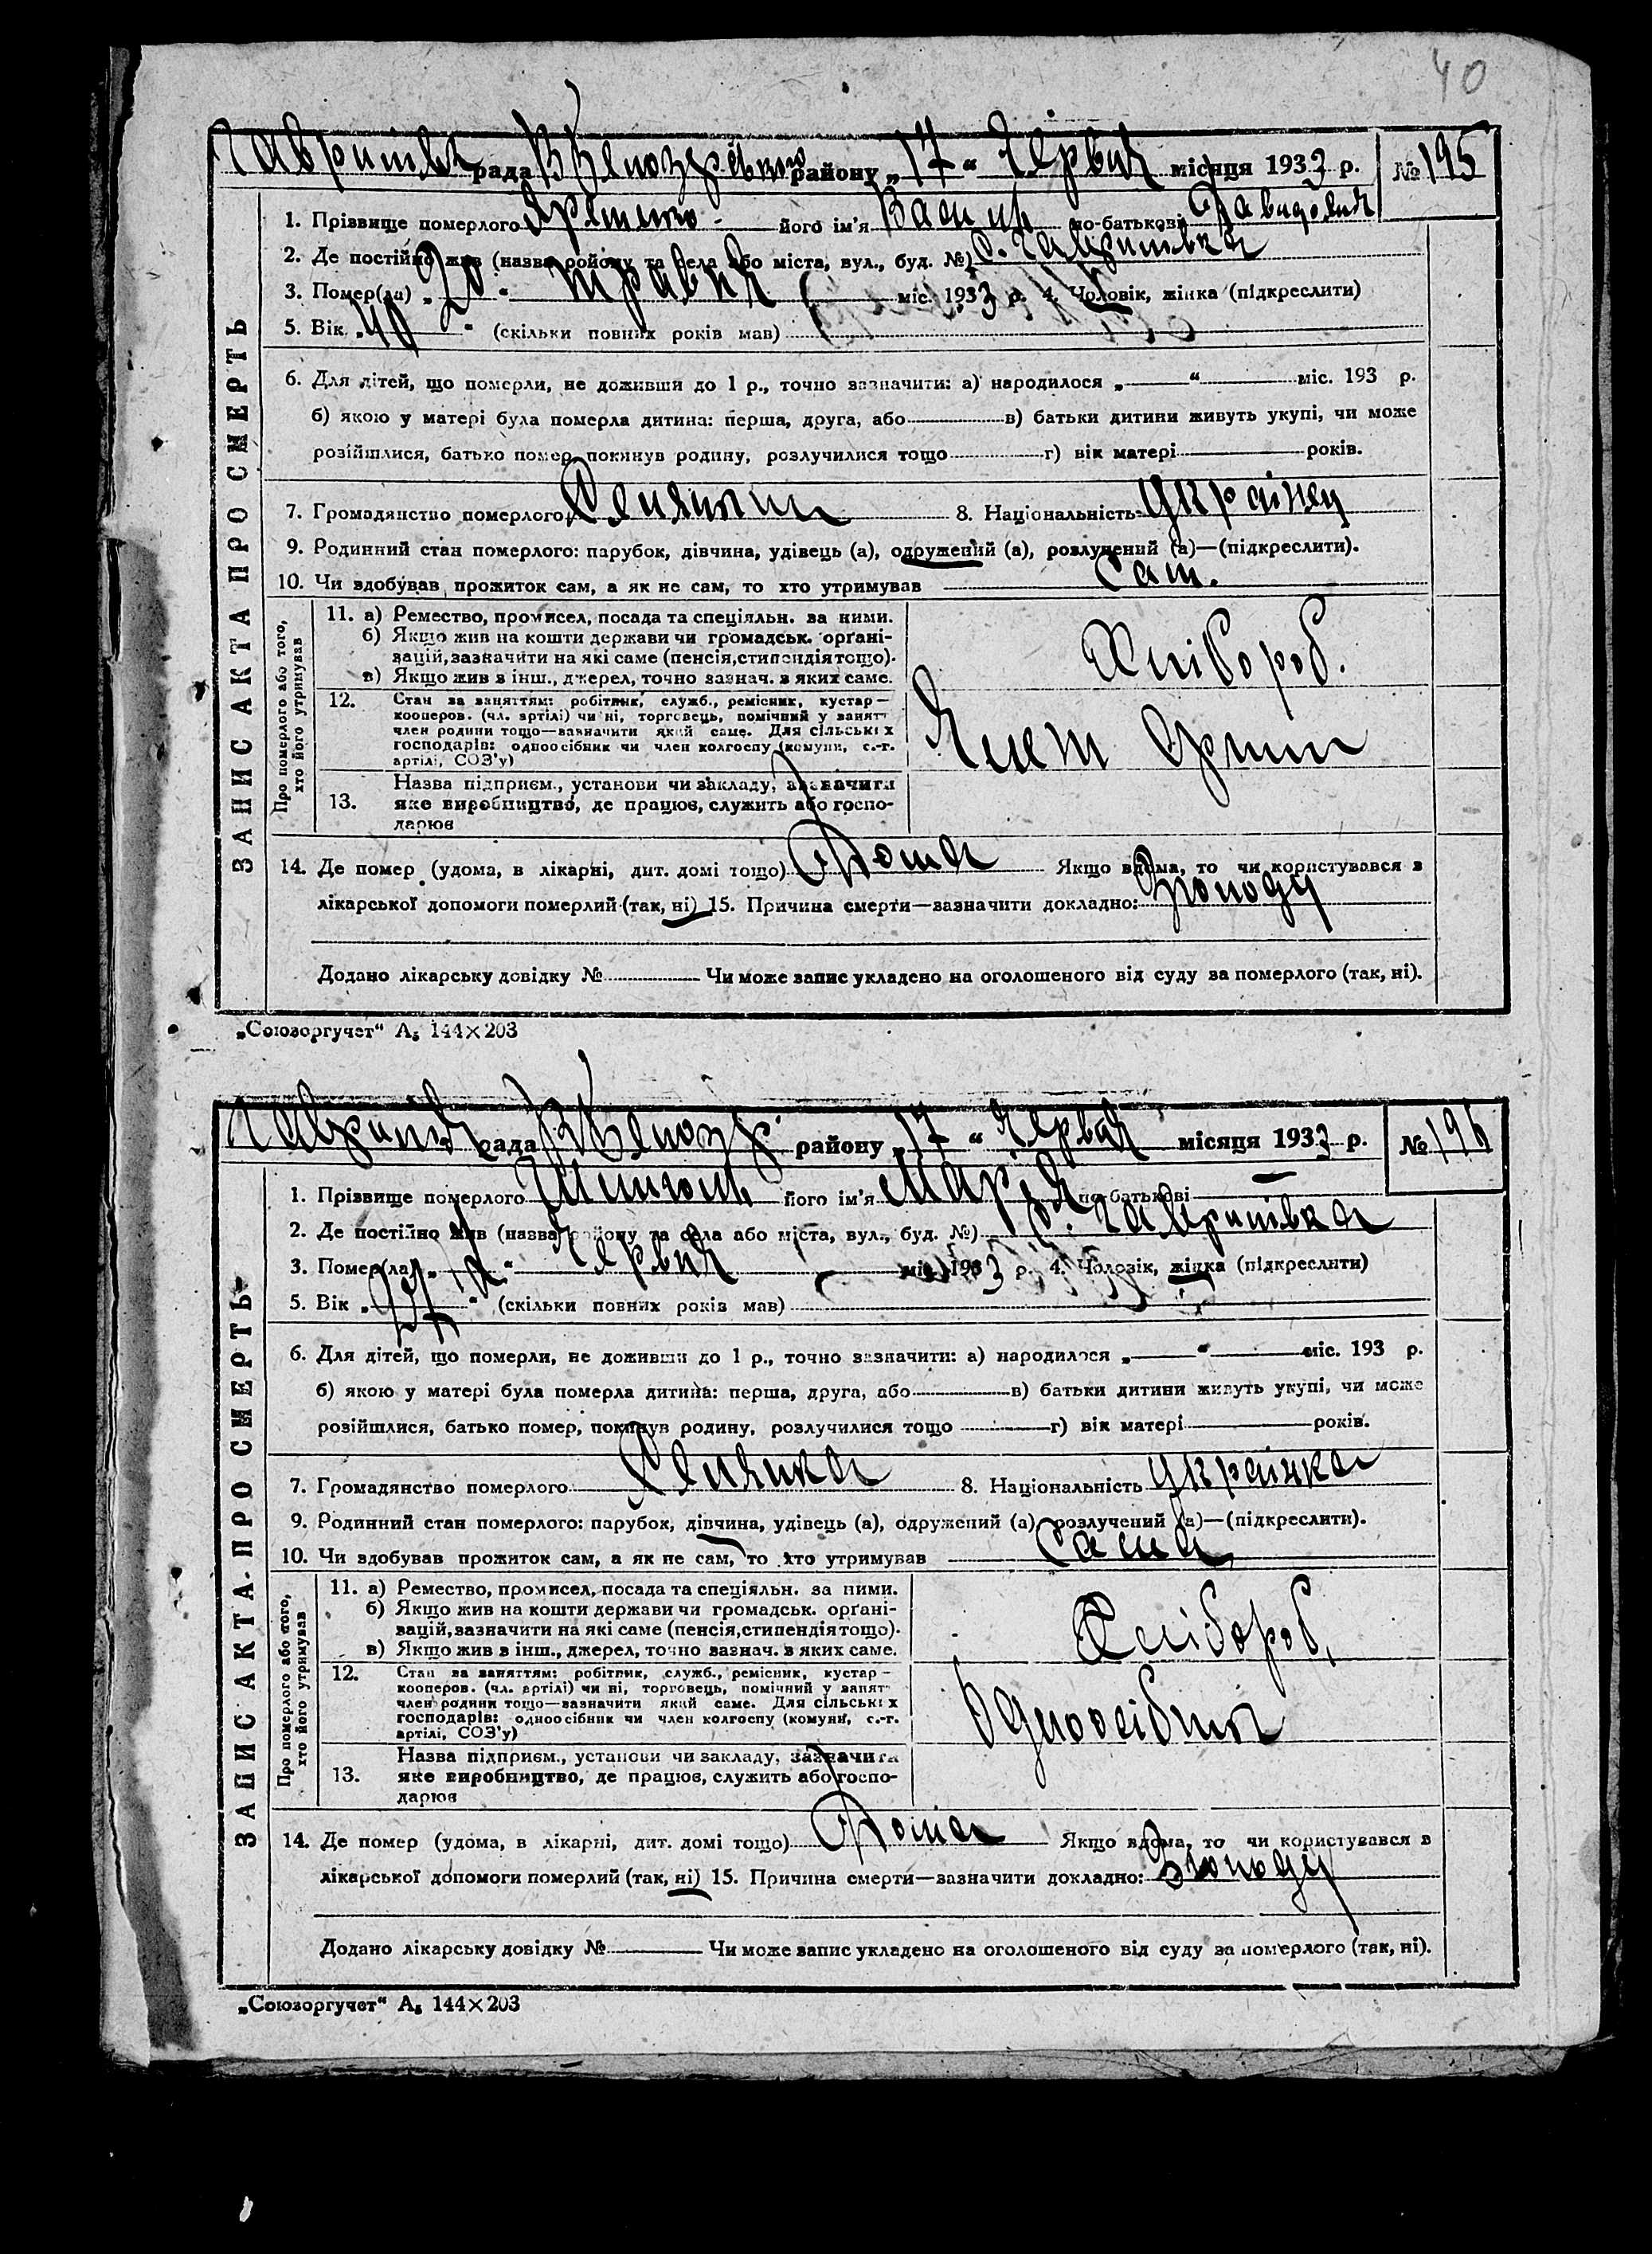 40
Гаврилівська рада В.Білозерського району „17“ червня місяця 1933 р. № 195
1. Прізвище померлого його ім'я Василь по-батькові Давидович
2. Де постійно жив (назва району та села або міста, вул., буд. №) с. Гаврилівка
3. Помер(ла) „20“ травня міс. 1933 р. 4. Чоловік, жінка (підкреслити)
5. Вік „40“ (скільки повних років мав)
6. Для дітей, що померли, не доживши до 1 р., точно зазначити: а) народилося „ “ міс. 193 р.
б) якою у матері була померла дитина: перша, друга, або в) батьки дитини живуть укупі, чи може
розійшлися, батько помер, покинув родину, розлучилися тощо г) вік матері років.
7. Громадянство померлого Селянин 8. Національність Українец
9. Родинний стан померлого: парубок, дівчина, удівець (а), одружений (а), розлучений (а)—(підкреслити).
10. Чи вдобував прожиток сам, а як не сам, то хто утримував Сам.
ЗАПИС АКТА ПРО СМЕРТЬ
Про померлого або того,
хто його утримував
11. а) Ремество, промисел, посада та спеціяльн. за ними.
б) Якщо жив на кошти держави чи громадськ. орґані-
зацій, зазначити на які саме (пенсія, стипендія тощо).
в) Якщо жив з інш., джерел, точно зазнач. з яких саме.
Хлібороб.
12. Стан за заняттям: робітник, служб., ремісник, кустар—
кооперов. (чл. артілі) чи ні, торговець, помічний у занятт
член родини тощо—зазначити який саме. Для сільських
господарів: одноосібник чи член колгоспу (комуни, с.-г.
артілі, СОЗ'у)
Член
13. Назва підприєм., установи чи закладу, зазначити
яке виробництво, де працює, служить або госпо-
дарює
14. Де помер (удома, в лікарні, дит. домі тощо) Дома Якщо вдома, то чи користувався з
лікарської допомоги померлий (так, ні) 15. Причина смерти—зазначити докладно: Зголоду
Додано лікарську довідку № Чи може запис укладено на оголошеного від суду за померлого (так, ні).
„Союзоргучет“ А₅ 144×203
Гаврилівська рада В.Білозер. району „17“ червня місяця 1933 р. № 196
1. Прізвище померлого його ім'я Марія по-батькові —
2. Де постійно жив (назва району та села або міста, вул., буд. №) с. Гаврилівка
3. Помер(ла) „ “ червня міс. 1933 р. 4. Чоловік, жінка (підкреслити)
5. Вік „ “ (скільки повних років мав)
6. Для дітей, що померли, не доживши до 1 р., точно зазначити: а) народилося „ “ міс. 193 р.
б) якою у матері була померла дитина: перша, друга, або в) батьки дитини живуть укупі, чи може
розійшлися, батько помер, покинув родину, розлучилися тощо г) вік матері років.
7. Громадянство померлого Селянка 8. Національність Українка
9. Родинний стан померлого: парубок, дівчина, удівець (а), одружений (а), розлучений (а)—(підкреслити).
10. Чи вдобував прожиток сам, а як не сам, то хто утримував Сама
ЗАПИС АКТА ПРО СМЕРТЬ
Про померлого або того,
хто його утримував
11. а) Ремество, промисел, посада та спеціяльн. за ними.
б) Якщо жив на кошти держави чи громадськ. орґані-
зацій, зазначити на які саме (пенсія, стипендія тощо).
в) Якщо жив з інш., джерел, точно зазнач. з яких саме.
Хлібороб.
12. Стан за заняттям: робітник, служб., ремісник, кустар—
кооперов. (чл. артілі) чи ні, торговець, помічний у занятт
член родини тощо—зазначити який саме. Для сільських
господарів: одноосібник чи член колгоспу (комуни, с.-г.
артілі, СОЗ'у)
13. Назва підприєм., установи чи закладу, зазначити
яке виробництво, де працює, служить або госпо-
дарює
14. Де помер (удома, в лікарні, дит. домі тощо) Дома Якщо вдома, то чи користувався з
лікарської допомоги померлий (так, ні) 15. Причина смерти—зазначити докладно: Зголоду
Додано лікарську довідку № Чи може запис укладено на оголошеного від суду за померлого (так, ні).
„Союзоргучет“ А₅ 144×203